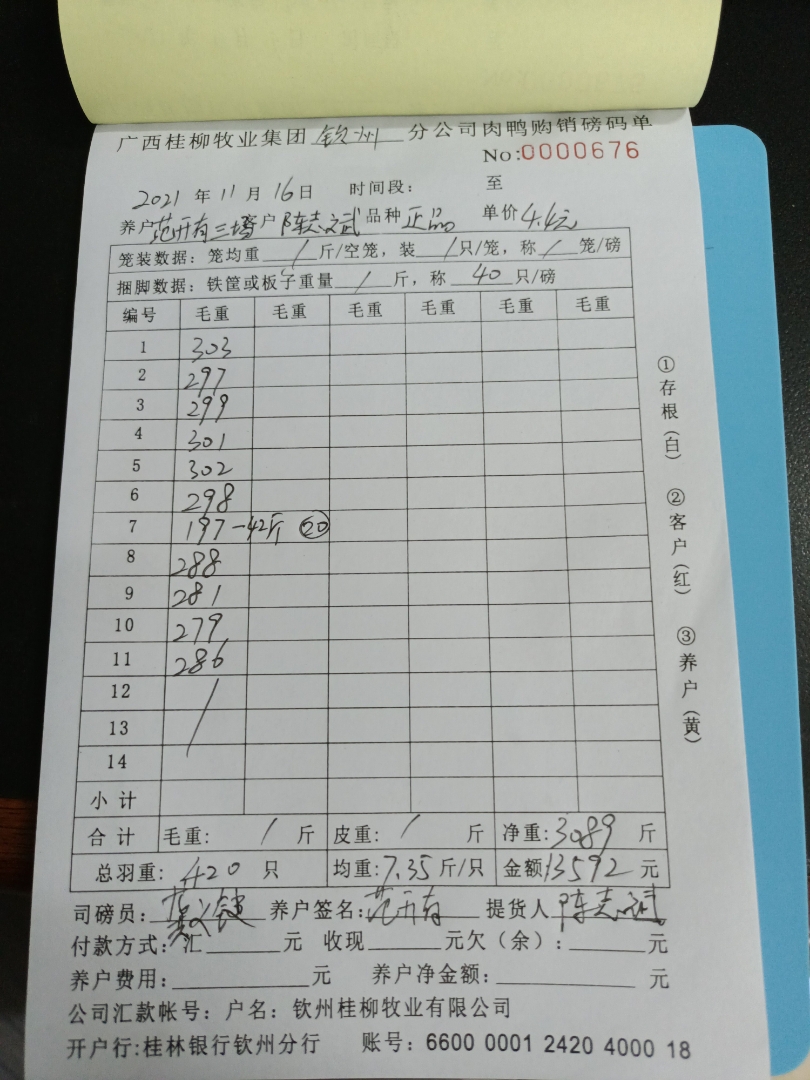 广西桂柳牧业集团 钦州 分公司肉鸭购销磅码单
No:0000676
2021 年 11 月 16 日 时间段: 至
养户 范开有三塔 客户 陈志斌 品种 正品 单价 4.4元
笼装数据: 笼均重 / 斤/空笼, 装 / 只/笼, 称 / 笼/磅
捆脚数据: 铁筐或板子重量 / 斤, 称 40 只/磅
编号 毛重 毛重 毛重 毛重 毛重 毛重
1 303
2 297
3 299
4 301
5 302
6 298
7 197-42斤 20
8 288
9 281
10 279
11 286
12 /
13
14
小计
合计 毛重: / 斤 皮重: / 斤 净重: 3089 斤
总羽重: 420 只 均重: 7.35 斤/只 金额 13592 元
司磅员: 养户签名: 范开有 提货人 陈志斌
付款方式: 汇 元 收现 元欠(余): 元
养户费用: 元 养户净金额: 元
公司汇款帐号: 户名: 钦州桂柳牧业有限公司
开户行:桂林银行钦州分行 账号: 6600 0001 2420 4000 18
①存根(白) ②客户(红) ③养户(黄)